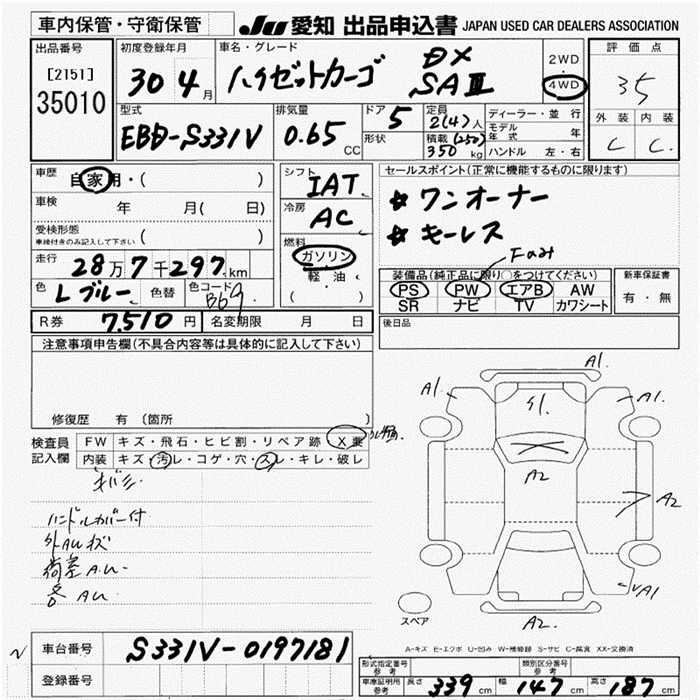 車内保管・守衛保管
JU 愛知 出品申込書 JAPAN USED CAR DEALERS ASSOCIATION
出品番号
[2151]
35010
初度登録年月
30 4月
車名・グレード
ハイゼットカーゴ
DX
SAⅢ
2WD
・
4WD
評価点
35
外装 内装
C C
型式
EBD-S331V
排気量
0.65 CC
ドア
5
形状
定員
2(4)人
積載 (250)
350 kg
ディーラー・並行
モデル年式 年
ハンドル 左・右
車歴
自家用・( )
車検
年 月( 日)
受検形態
車検付きのみ記入して下さい ( )
走行
28万7千297km
色
Lブルー
色替
色コード
B69
シフト
IAT
冷房
AC
燃料
ガソリン
軽・油
( )
セールスポイント(正常に機能するものに限ります)
☆ ワンオーナー
☆ キーレス
装備品(純正品に限り○をつけてください)
PS PW エアB AW
SR ナビ TV カワシート
新車保証書
有・無
R券 7,510円 名変期限 月 日
後日品
注意事項申告欄(不具合内容等は具体的に記入して下さい)
修復歴 有 (箇所 )
検査員
記入欄
FW キズ・飛石・ヒビ割・リペア跡
内装 キズ・汚レ・コゲ・穴・スレ・キレ・破レ
ハンドルカバー付
各AU
A1.
A1.
A1.
A2
A2
A1
A2.
スペア
A-キズ E-エクボ U-凹み W-補修跡 S-サビ C-腐食 XX-交換済
車台番号 S331V-0197181
登録番号
形式指定番号
参考
類別区分番号
参考
車庫証明用
参考
長さ 339cm 幅 147cm 高さ 187cm